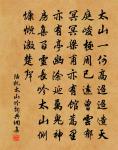 太山一何高迢迢造天
庭峻極周已遠曾雲鬱
冥冥梁甫亦有館蒿里
亦有亭幽岑延萬鬼神
房集百靈長吟太山側
慷慨激楚聲
陸机太山吟